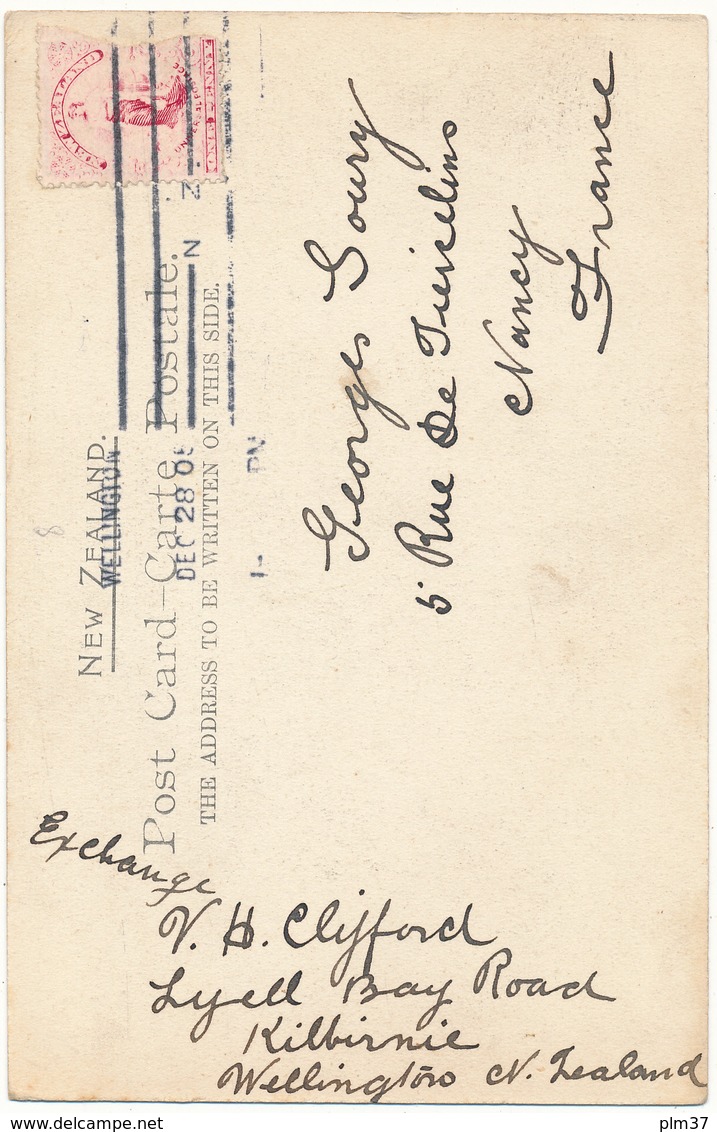 NEW ZEALAND.
WELLINGTON
Post Card-Carte Postale.
DEC 28 05
THE ADDRESS TO BE WRITTEN ON THIS SIDE.
N Z
1- PM
UNIVERSAL POSTAGE
ONE PENNY
Georges Goury
5 Rue De Tiercelins
Nancy
France
Exchange
V. H. Clifford
Lyell Bay Road
Kilbirnie
Wellington N. Zealand
delcampe.net
plm37